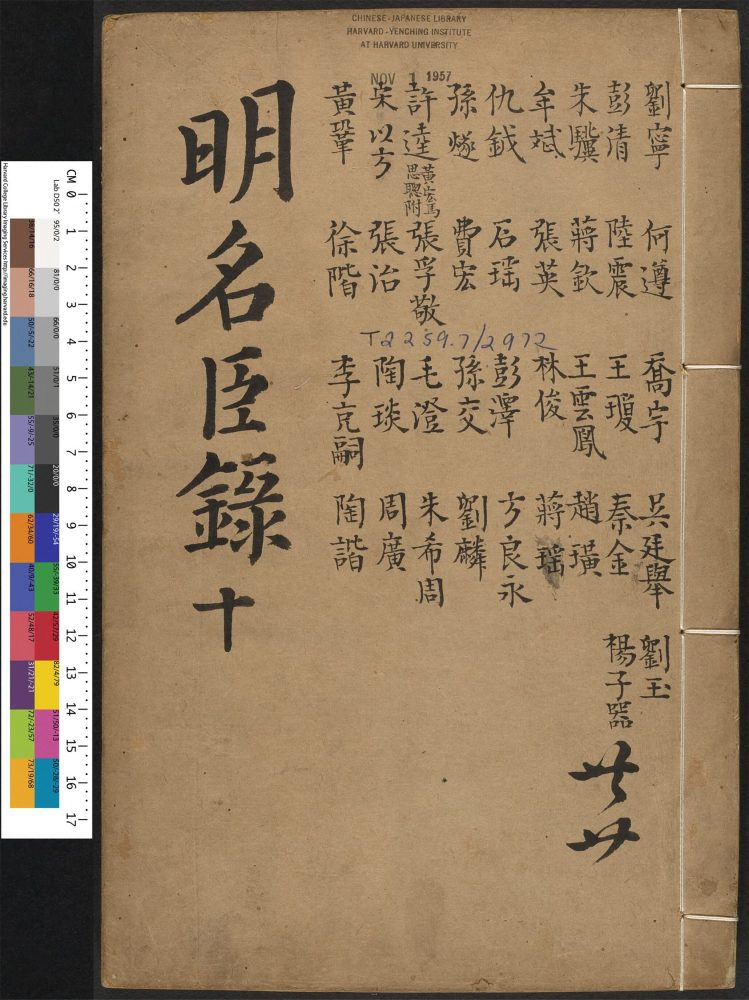 CHINESE-JAPANESE LIBRARY
HARVARD-YENCHING INSTITUTE
AT HARVARD UNIVERSITY
NOV 1 1957
劉寧 何遵 喬宇 吳廷舉 劉玉
彭清 陸震 王瓊 秦金 楊子器
朱驥 蔣欽 王雲鳳 趙璜
牟斌 張英 林俊 蔣瑤
仇鉞 石瑶 彭澤 方良永
孫燧 費宏 孫交 劉麟
許逵 黃宏馬思聰附 張孚敬 毛澄 朱希周
宋以方 張治 陶琰 周廣
黃鞏 徐階 李充嗣 陶諧
T2259.7/2972
明名臣錄 十
CM 0 1 2 3 4 5 6 7 8 9 10 11 12 13 14 15 16 17
Harvard College Library Imaging Services http://imaging.harvard.edu